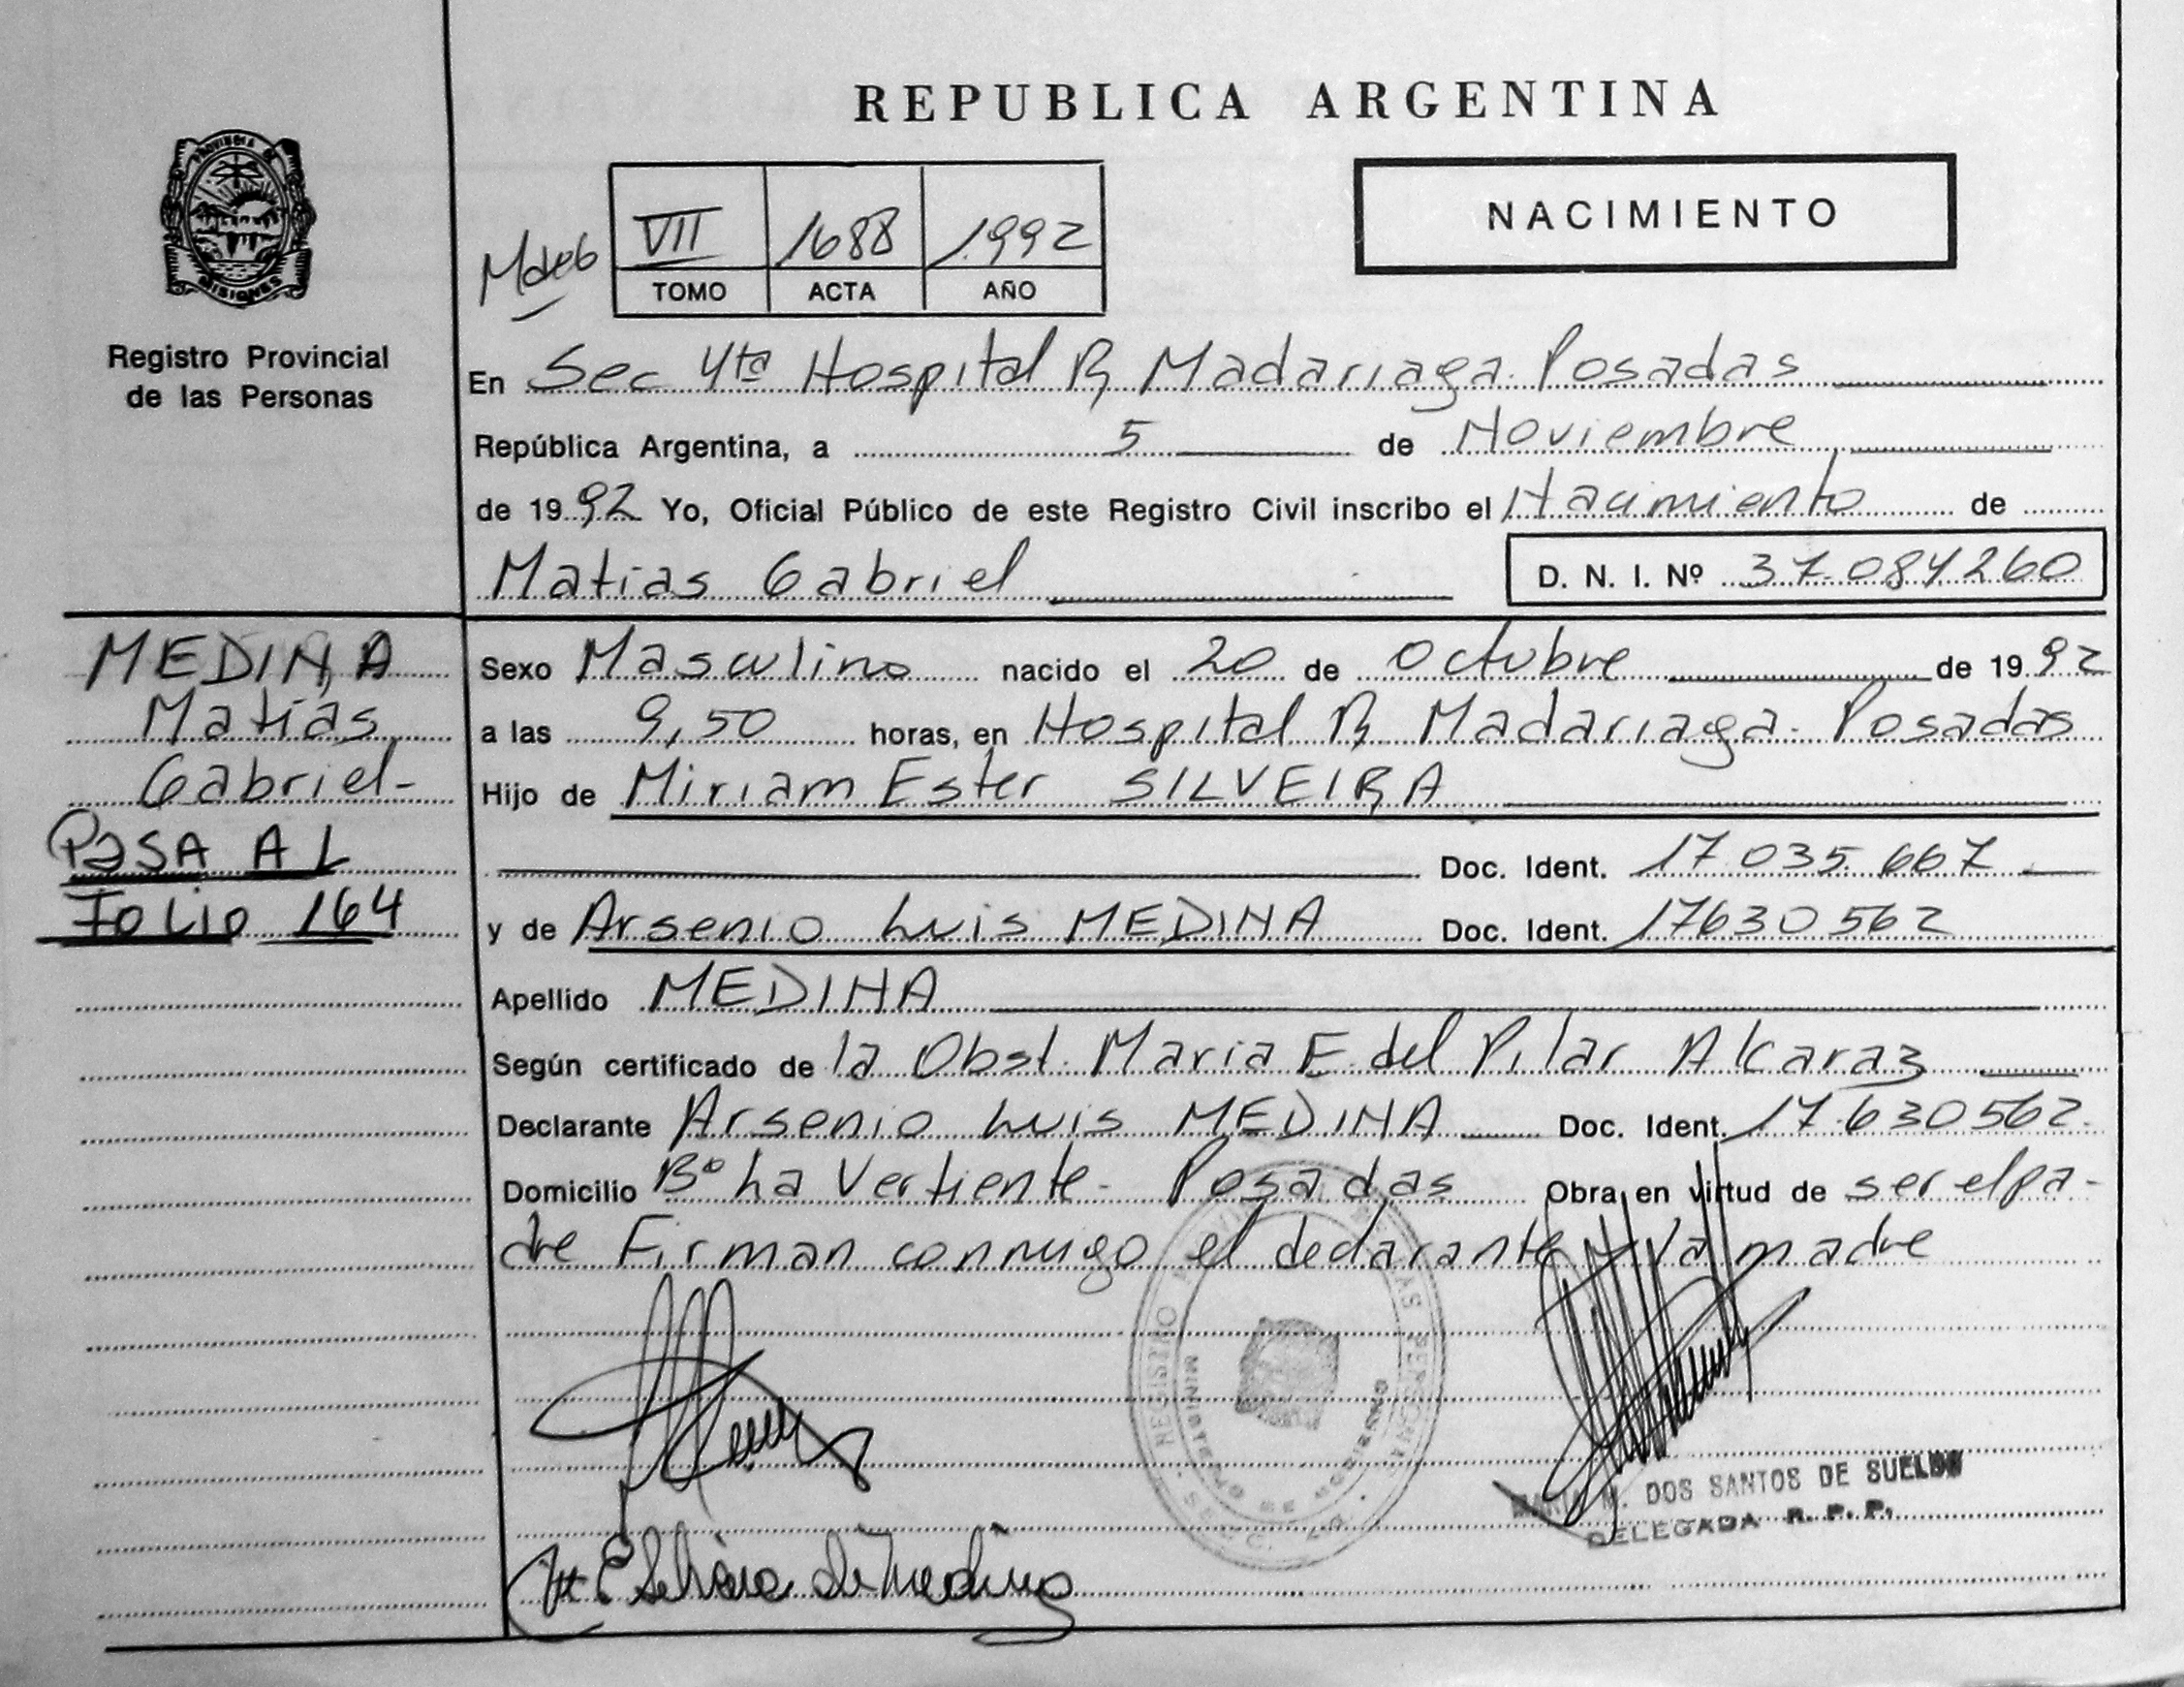 REPUBLICA ARGENTINA
PROVINCIA DE
MISIONES
Registro Provincial
de las Personas
NACIMIENTO
VII 1688 1992
TOMO ACTA AÑO
En Sec 4ta Hospital R Madariaga. Posadas
República Argentina, a 5 de Noviembre
de 1992 Yo, Oficial Público de este Registro Civil inscribo el Nacimiento de
Matias Gabriel D. N. I. Nº 37.084260
MEDINA
Matias
Gabriel-
PASA AL
Folio 164
Sexo Masculino nacido el 20 de Octubre de 1992
a las 9,50 horas, en Hospital R Madariaga- Posadas
Hijo de Miriam Ester SILVEIRA
Doc. Ident. 17.035.667
y de Arsenio Luis MEDINA Doc. Ident. 17630562
Apellido MEDINA
Según certificado de la Obst. Maria E del Pilar Alcaraz
Declarante Arsenio Luis MEDINA Doc. Ident. 17.630562.
Domicilio Bº La Vertiente- Posadas Obra en virtud de ser el pa-
dre Firman conmigo el declarante y la madre
REGISTRO PERSONAS
MINISTERIO DE GOBIERNO
M. DOS SANTOS DE SUELDO
DELEGADA R. P. P.
M E Silveira de Medina